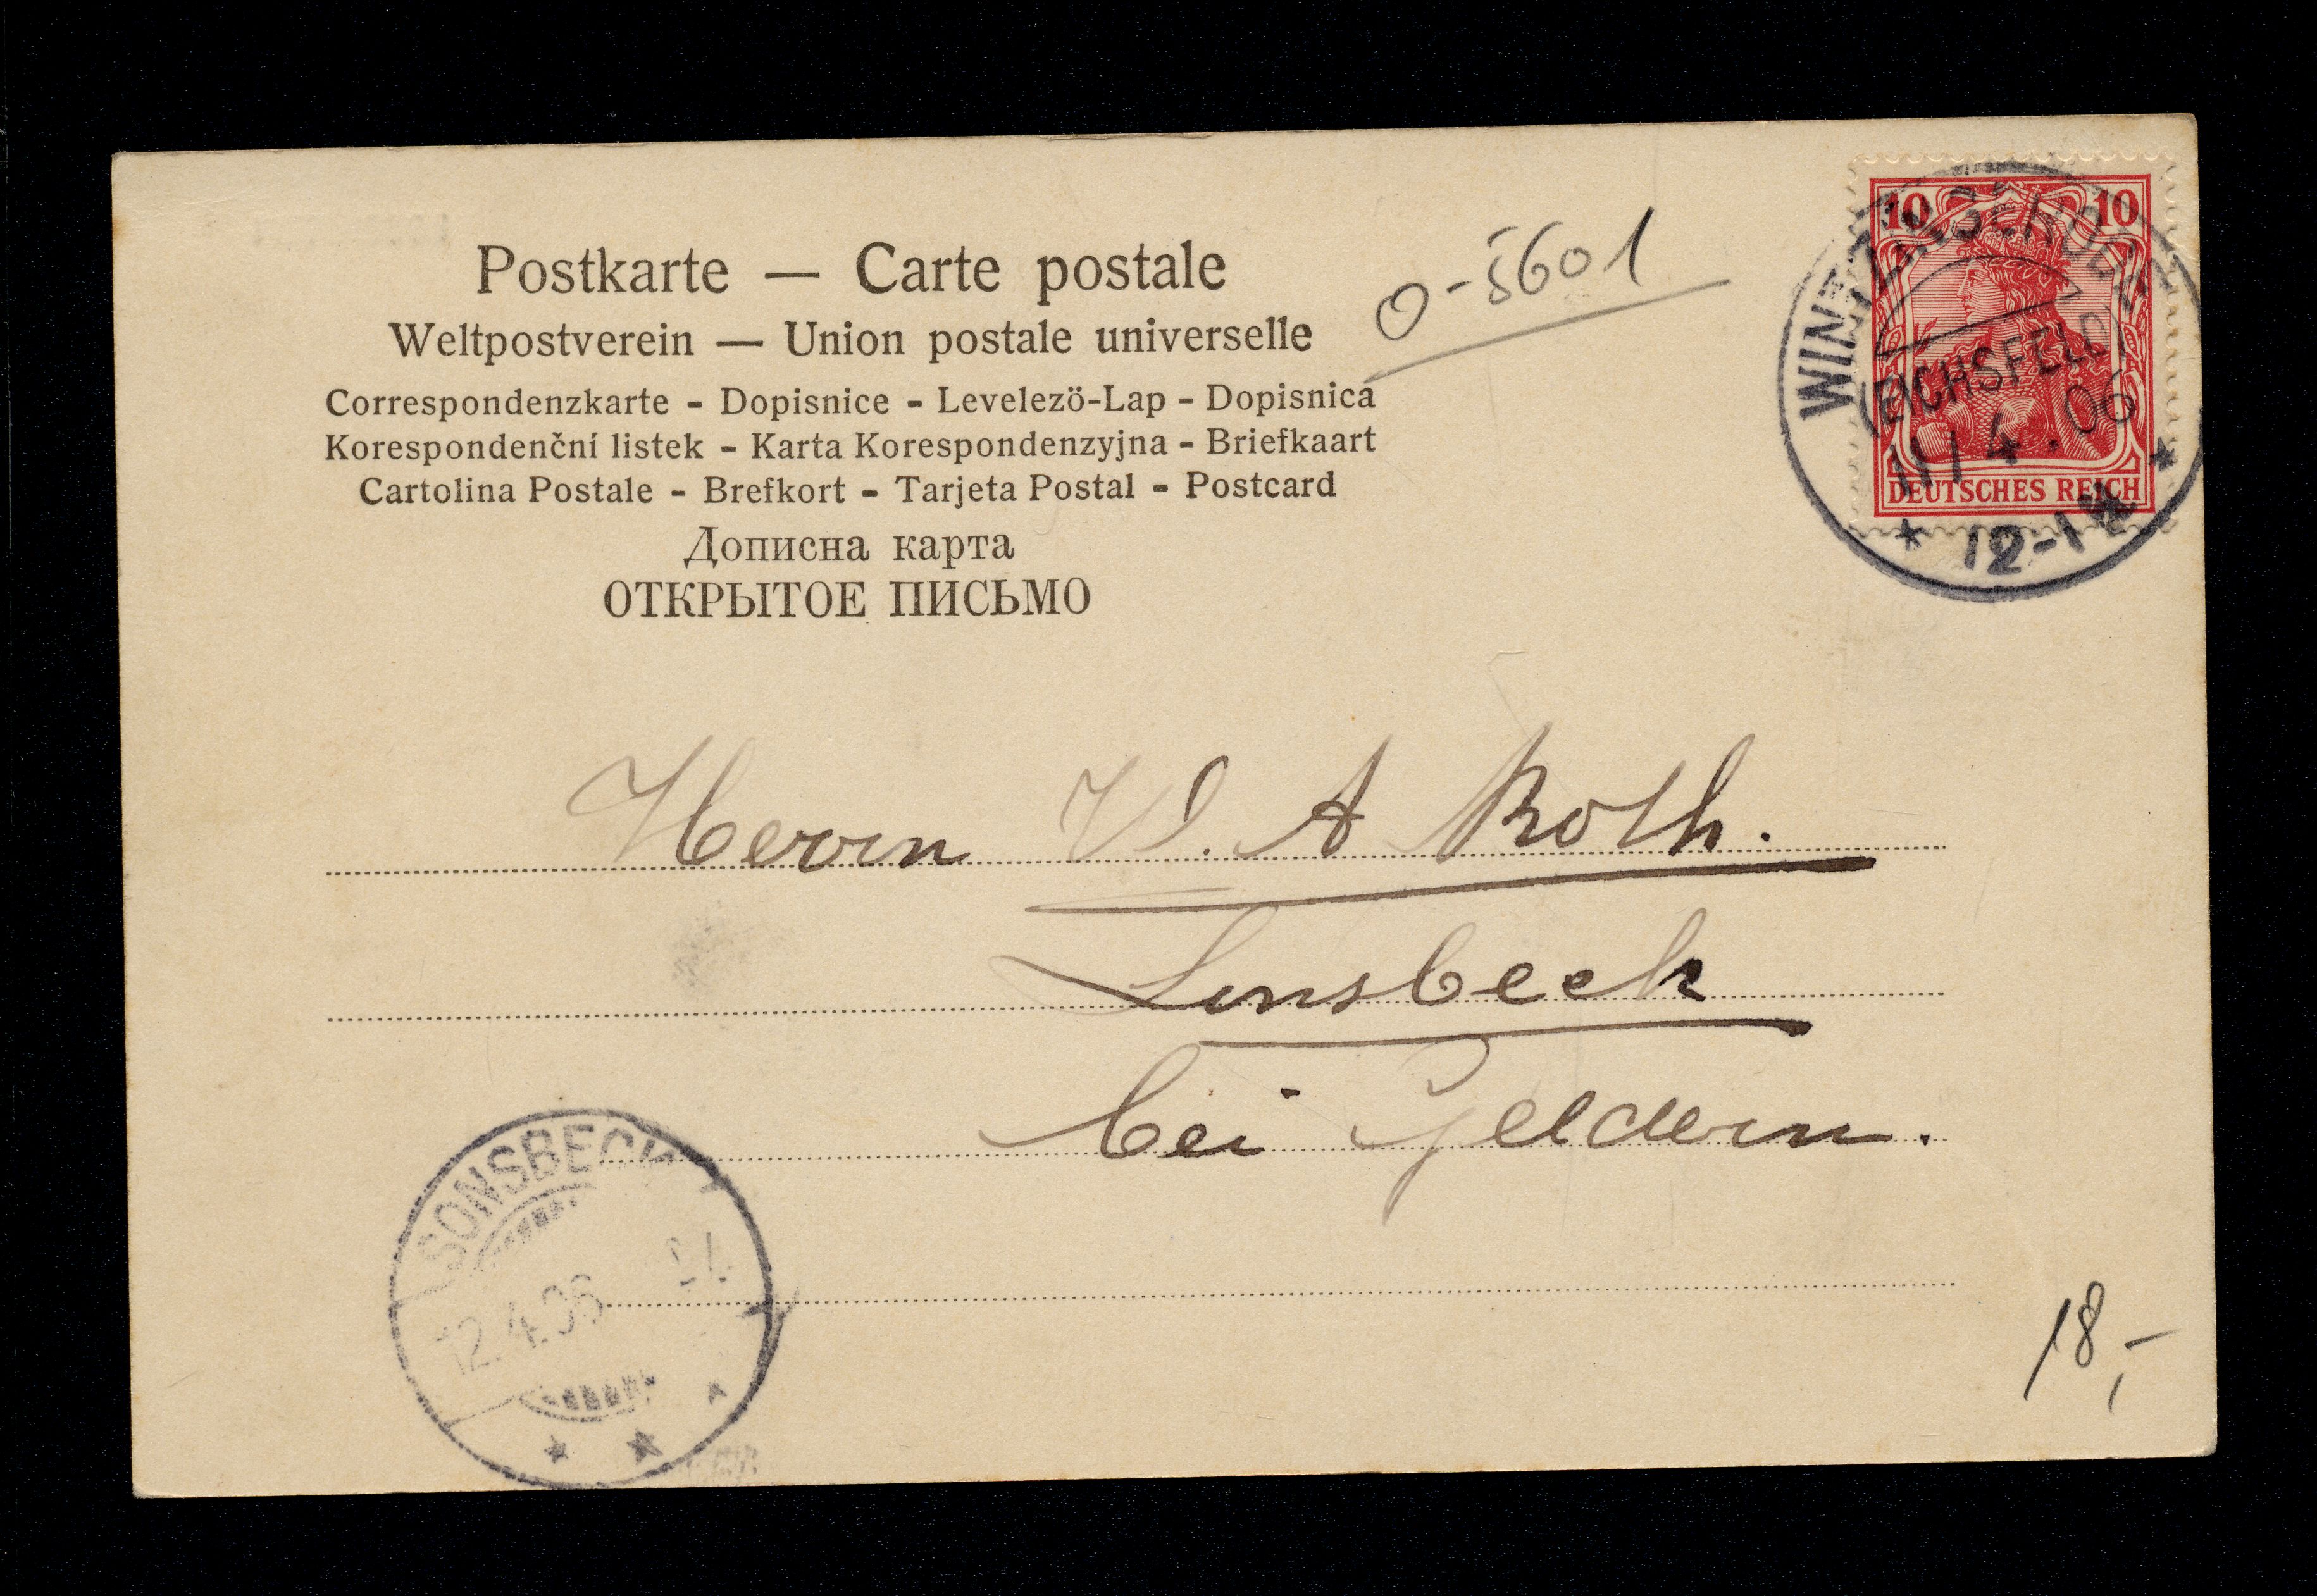 Postkarte — Carte postale
Weltpostverein — Union postale universelle
Correspondenzkarte - Dopisnice - Levelezö-Lap - Dopisnica
Korespondenční listek - Karta Korespondenzyjna - Briefkaart
Cartolina Postale - Brefkort - Tarjeta Postal - Postcard
Дописна карта
ОТКРЫТОЕ ПИСЬМО
O-5601
10 10
DEUTSCHES REICH
(EICHSFELD)
11/4.06
Herrn A Roth.
Sonsbeck
bei Geldern.
SONSBECK
12.4.06
18,-